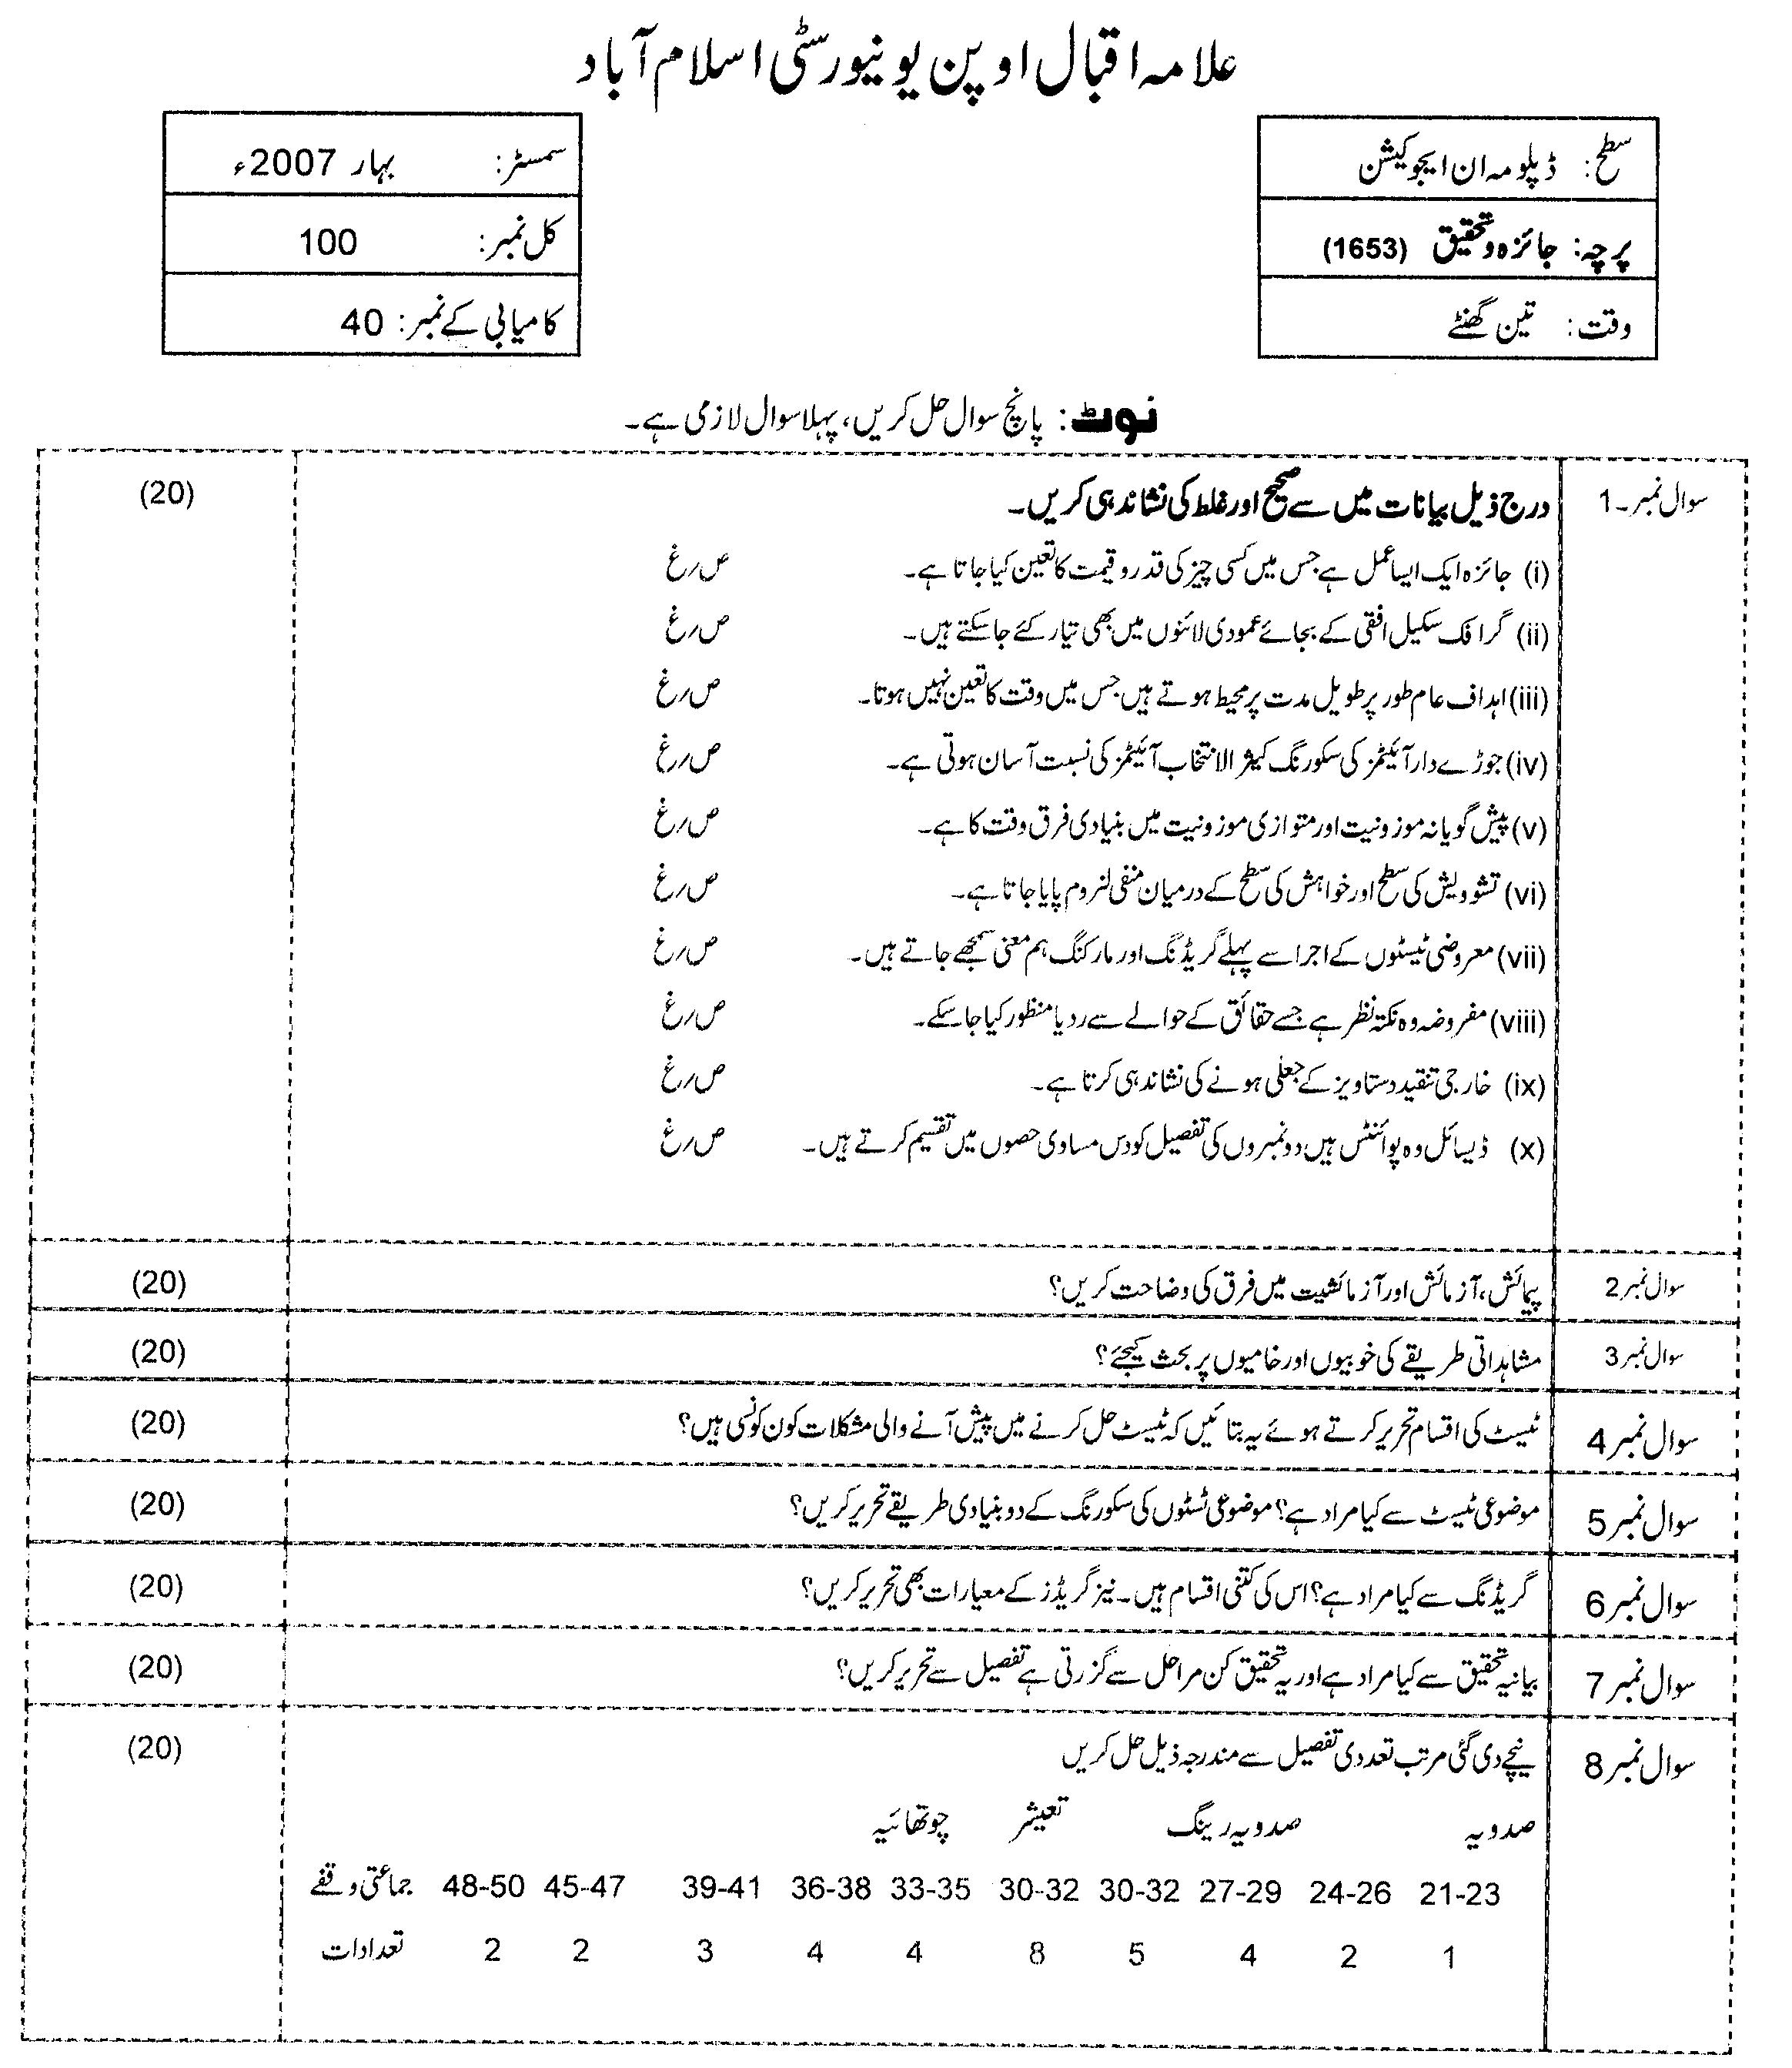 علامہ اقبال اوپن یونیورسٹی اسلام آباد
سطح: ڈپلومہ ان ایجوکیشن
سمسٹر: بہار 2007ء
پرچہ: جائزہ و تحقیق (1653)
کل نمبر: 100
وقت: تین گھنٹے
کامیابی کے نمبر: 40
نوٹ: پانچ سوال حل کریں، پہلا سوال لازمی ہے۔
سوال نمبر۔1 درج ذیل بیانات میں سے صحیح اور غلط کی نشاندہی کریں۔ (20)
(i) جائزہ ایک ایسا عمل ہے جس میں کسی چیز کی قدر و قیمت کا تعین کیا جاتا ہے۔ ص/غ
(ii) گرافک سکیل افقی کے بجائے عمودی لائنوں میں بھی تیار کئے جا سکتے ہیں۔ ص/غ
(iii) اہداف عام طور پر طویل مدت پر محیط ہوتے ہیں جس میں وقت کا تعین نہیں ہوتا۔ ص/غ
(iv) جوڑے دار آئیٹمز کی سکورنگ کثیر الانتخاب آئیٹمز کی نسبت آسان ہوتی ہے۔ ص/غ
(v) پیش گویانہ موزونیت اور متوازی موزونیت میں بنیادی فرق وقت کا ہے۔ ص/غ
(vi) تشویش کی سطح اور خواہش کی سطح کے درمیان منفی لزوم پایا جاتا ہے۔ ص/غ
(vii) معروضی ٹیسٹوں کے اجرا سے پہلے گریڈنگ اور مارکنگ ہم معنی سمجھے جاتے ہیں۔ ص/غ
(viii) مفروضہ وہ نکتہ نظر ہے جسے حقائق کے حوالے سے رد یا منظور کیا جا سکے۔ ص/غ
(ix) خارجی تنقید دستاویز کے جعلی ہونے کی نشاندہی کرتا ہے۔ ص/غ
(x) ڈیسائل وہ پوائنٹس ہیں دو نمبروں کی تفصیل کو دس مساوی حصوں میں تقسیم کرتے ہیں۔ ص/غ
سوال نمبر 2 پیمائش، آزمائش اور آزمائشیت میں فرق کی وضاحت کریں؟ (20)
سوال نمبر 3 مشاہداتی طریقے کی خوبیوں اور خامیوں پر بحث کیجئے؟ (20)
سوال نمبر 4 ٹیسٹ کی اقسام تحریر کرتے ہوئے یہ بتائیں کہ ٹیسٹ حل کرنے میں پیش آنے والی مشکلات کون کونسی ہیں؟ (20)
سوال نمبر 5 موضوعی ٹیسٹ سے کیا مراد ہے؟ موضوعی ٹسٹوں کی سکورنگ کے دو بنیادی طریقے تحریر کریں؟ (20)
سوال نمبر 6 گریڈنگ سے کیا مراد ہے؟ اس کی کتنی اقسام ہیں۔ نیز گریڈز کے معیارات بھی تحریر کریں؟ (20)
سوال نمبر 7 بیانیہ تحقیق سے کیا مراد ہے اور یہ تحقیق کن مراحل سے گزرتی ہے تفصیل سے تحریر کریں؟ (20)
سوال نمبر 8 نیچے دی گئی مرتب تعددی تفصیل سے مندرجہ ذیل حل کریں (20)
صدویہ صدویہ رینگ تعیشر چوتھائیہ
21-23 24-26 27-29 30-32 30-32 33-35 36-38 39-41 45-47 48-50 جماعتی وقفے
1 2 4 5 8 4 4 3 2 2 تعدادات